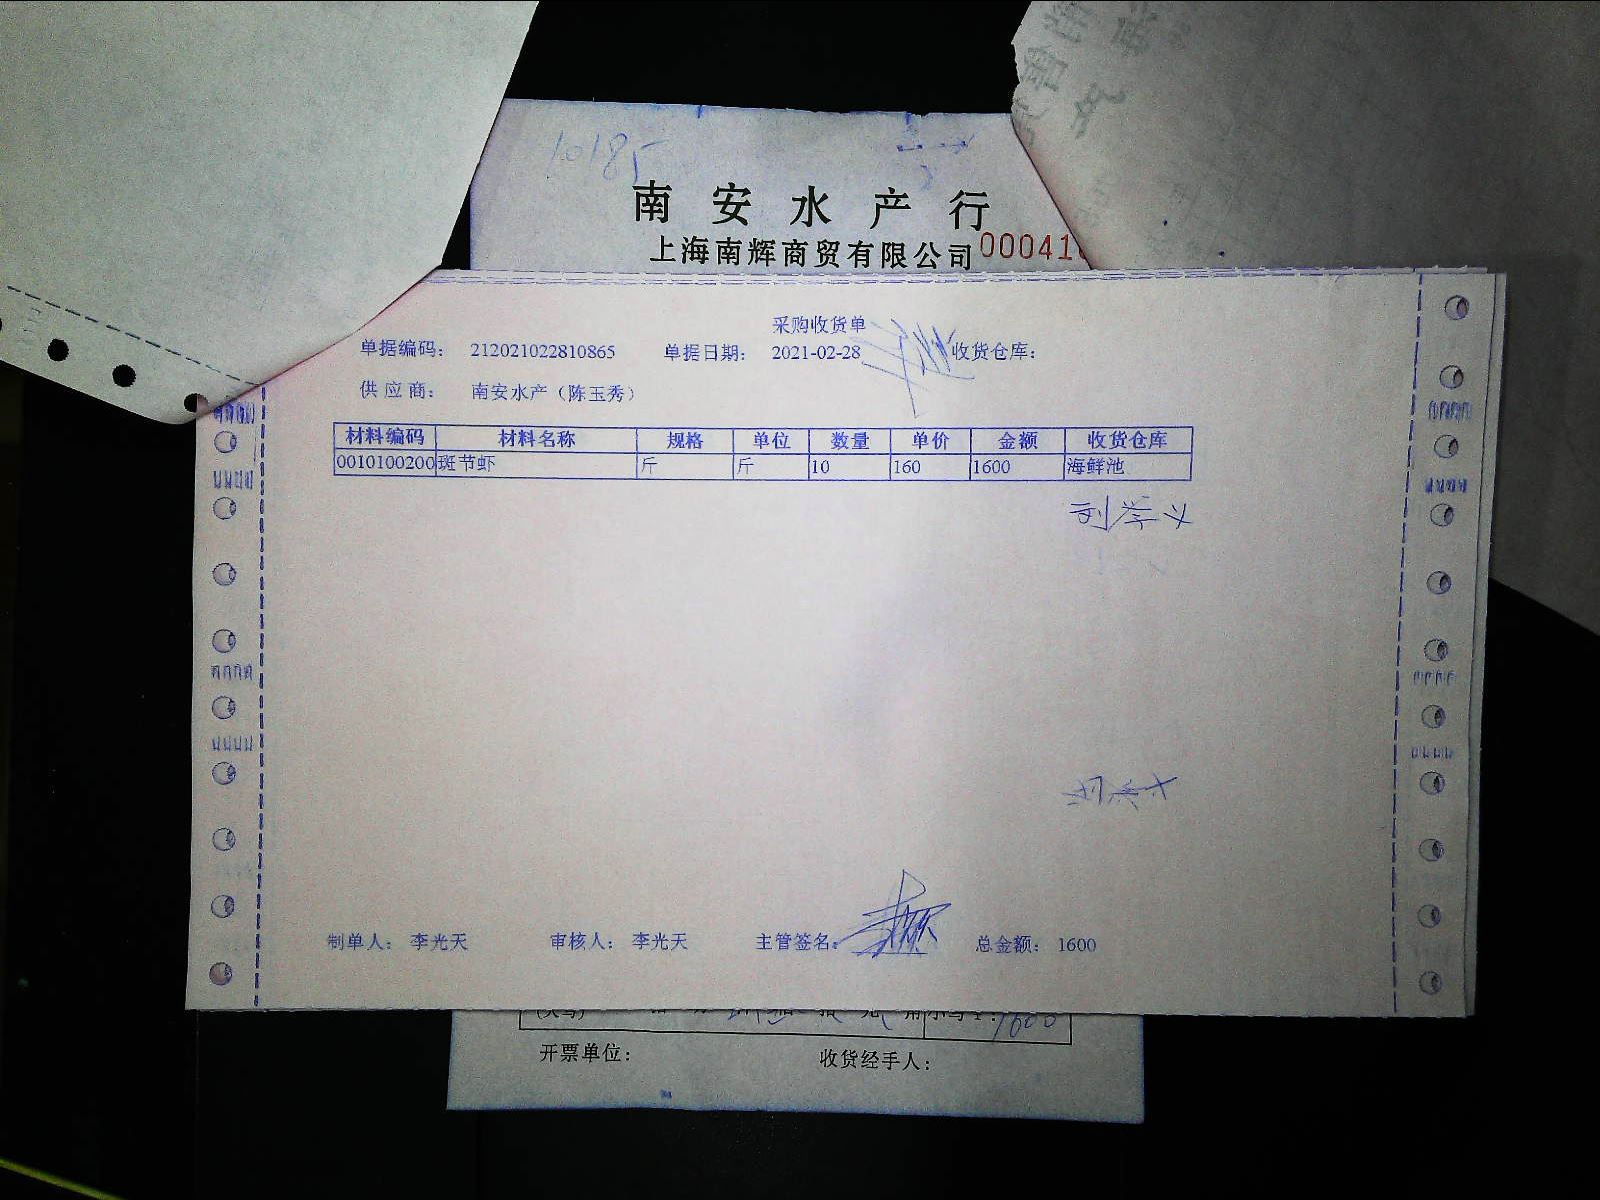 10185
南安水产行
上海南辉商贸有限公司 00041
采购收货单
单据编码: 212021022810865 单据日期: 2021-02-28 收货仓库:
供应商: 南安水产（陈玉秀）
材料编码 材料名称 规格 单位 数量 单价 金额 收货仓库
0010100200 斑节虾 斤 斤 10 160 1600 海鲜池
刘学义
制单人: 李光天 审核人: 李光天 主管签名: 总金额: 1600
1600
开票单位: 收货经手人: